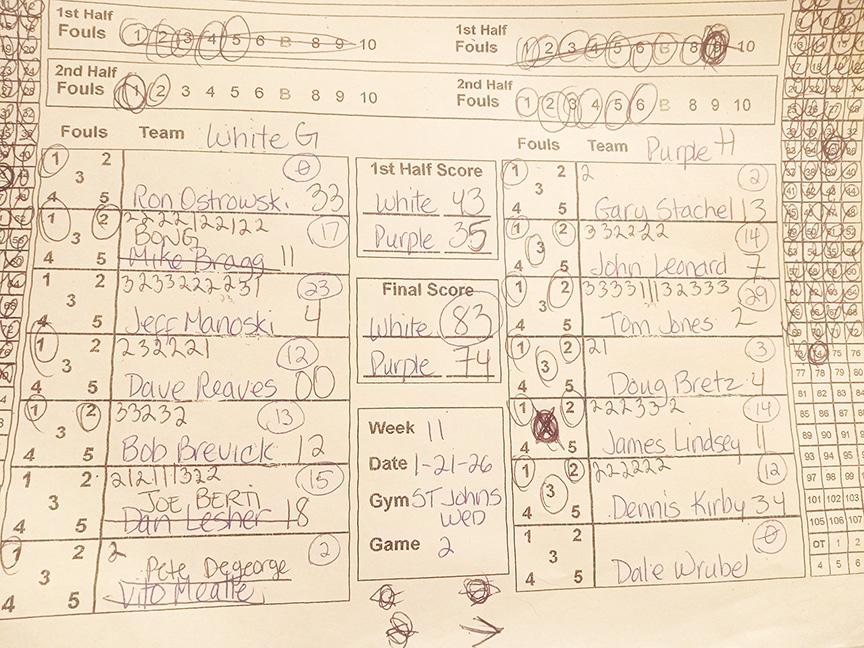 1st Half Fouls 1 2 3 4 5 6 B 8 9 10
1st Half Fouls 1 2 3 4 5 6 B 8 9 10
2nd Half Fouls 1 2 3 4 5 6 B 8 9 10
2nd Half Fouls 1 2 3 4 5 6 B 8 9 10
Fouls Team White G
1 2 3 4 5
0
Ron Ostrowski 33
1 2 3 4 5
17
BONG
Mike Bragg 11
1 2 3 4 5
3233222231 23
Jeff Manoski 4
1 2 3 4 5
232221 12
Dave Reaves 00
1 2 3 4 5
33232 13
Bob Brevick 12
1 2 3 4 5
212111322 15
JOE BERTI
Dan Lesher 18
1 2 3 4 5
2 2
Pete Degeorge
Vito Mealle
1st Half Score
White 43
Purple 35
Final Score
White 83
Purple 74
Week 11
Date 1-21-26
Gym ST Johns
WED
Game 2
Fouls Team Purple H
1 2 3 4 5
2 2
Gary Stachel 13
1 2 3 4 5
332222 14
John Leonard 7
1 2 3 4 5
333311132333 29
Tom Jones 2
1 2 3 4 5
21 3
Doug Bretz 4
1 2 4 5
222332 14
James Lindsey 11
1 2 3 4 5
222222 12
Dennis Kirby 34
1 2 3 4 5
0
Dale Wrubel
73 74 75 76
77 78 79 80
81 82 83 84
85 86 87 88
89 90 91 92
93 94 95 96
97 98 99 100
101 102 103
105 106 107
OT 1 2
4 5 6